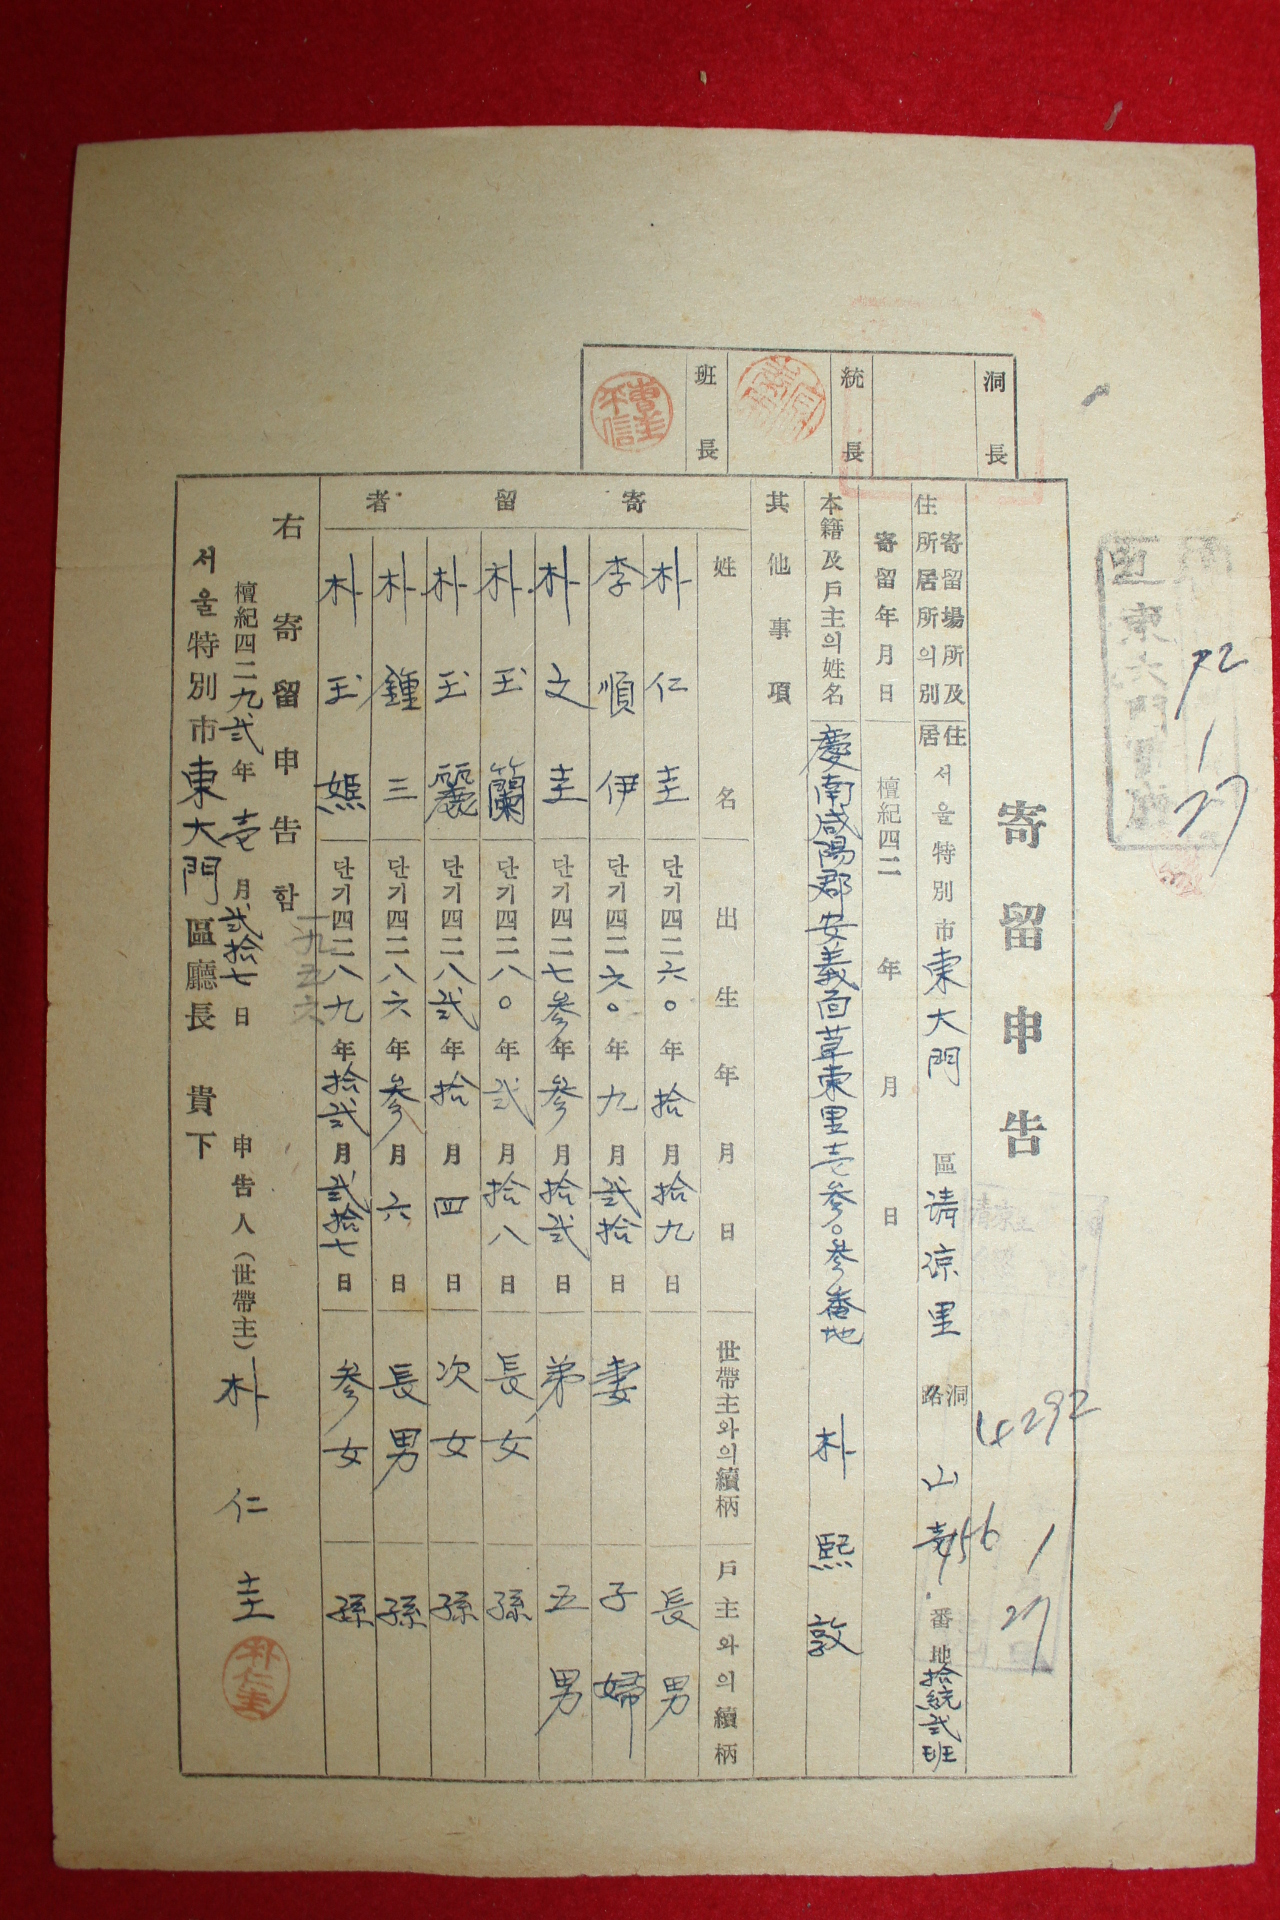 洞長
統長
班長
曹圭
秉信
寄留申告
寄留場所及
住所居所의別
住居
서울特別市東大門區請凉里洞路山壱番地拾統弍班
寄留年月日
檀紀四二 年 月 日
本籍及戶主의姓名
慶南咸陽郡安義面草東里壱參○參番地 朴熙敦
其他事項
寄留者
姓名 出生年月日 世帶主와의續柄 戶主와의續柄
朴仁圭 단기四二六○年拾月拾九日 長男
李順伊 단기四二六○年九月弍拾日 妻 子婦
朴文圭 단기四二七參年參月拾弍日 弟 五男
朴玉蘭 단기四二八○年弍月拾八日 長女 孫
朴玉麗 단기四二八弍年拾月四日 次女 孫
朴鍾三 단기四二八六年參月六日 長男 孫
朴玉 단기四二八九年拾弍月弍拾七日 參女 孫
一九五六
右寄留申告함
檀紀四二九弍年壱月弍拾七日
申告人(世帶主)朴仁圭
朴仁圭
서울特別市東大門區廳長 貴下
東大門
92
1
27
4292
1
27
456